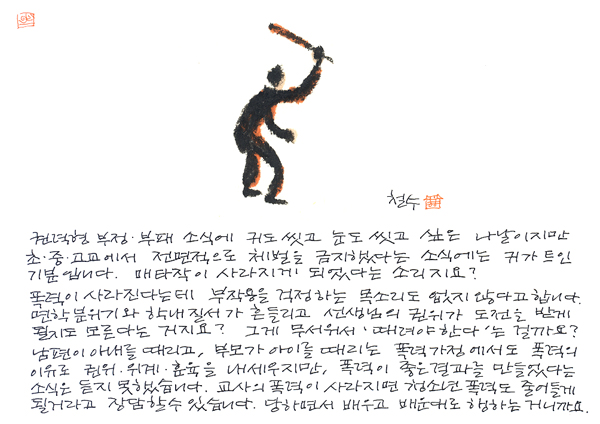 철수
권력형 부정·부패 소식에 귀도 씻고 눈도 씻고 싶은 나날이지만
초·중·고교에서 전면적으로 체벌을 금지했다는 소식에는 귀가 트인
기분입니다. 매타작이 사라지게 되었다는 소리지요?
폭력이 사라진다는데 부작용을 걱정하는 목소리도 없지 않다고 합니다.
면학분위기와 학내질서가 흔들리고 선생님의 권위가 도전을 받게
될지도 모른다는 거지요? 그게 무서워서 '때려야한다'는 걸까요?
남편이 아내를 때리고, 부모가 아이를 때리는 폭력가정에서도 폭력의
이유로 권위·위계·훈육을 내세우지만, 폭력이 좋은결과를 만들었다는
소식은 듣지 못했습니다. 교사의 폭력이 사라지면 청소년 폭력도 줄어들게
될거라고 장담할수 있습니다. 당하면서 배우고 배운대로 행하는 거니까요.